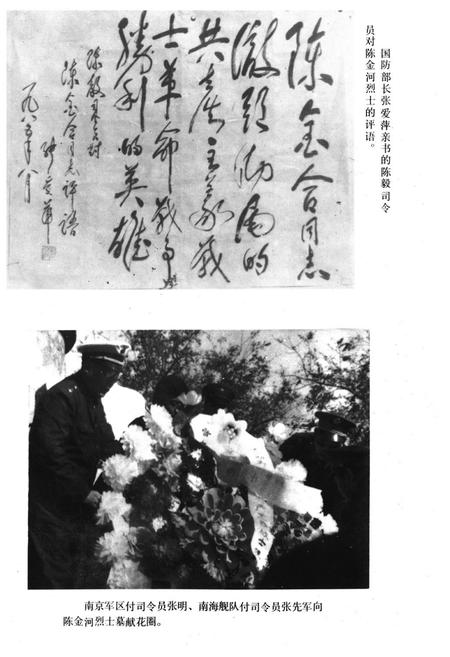 国防部长张爱萍亲书的陈毅司令
员对陈金河烈士的评语。
陈金合同志
彻头彻尾的
共产主义战
士革命战争
胜利的英雄
陈毅司令对
陈金合同志评语
张爱萍
一九八五年八月
南京军区付司令员张明、南海舰队付司令员张先军向
陈金河烈士墓献花圈。